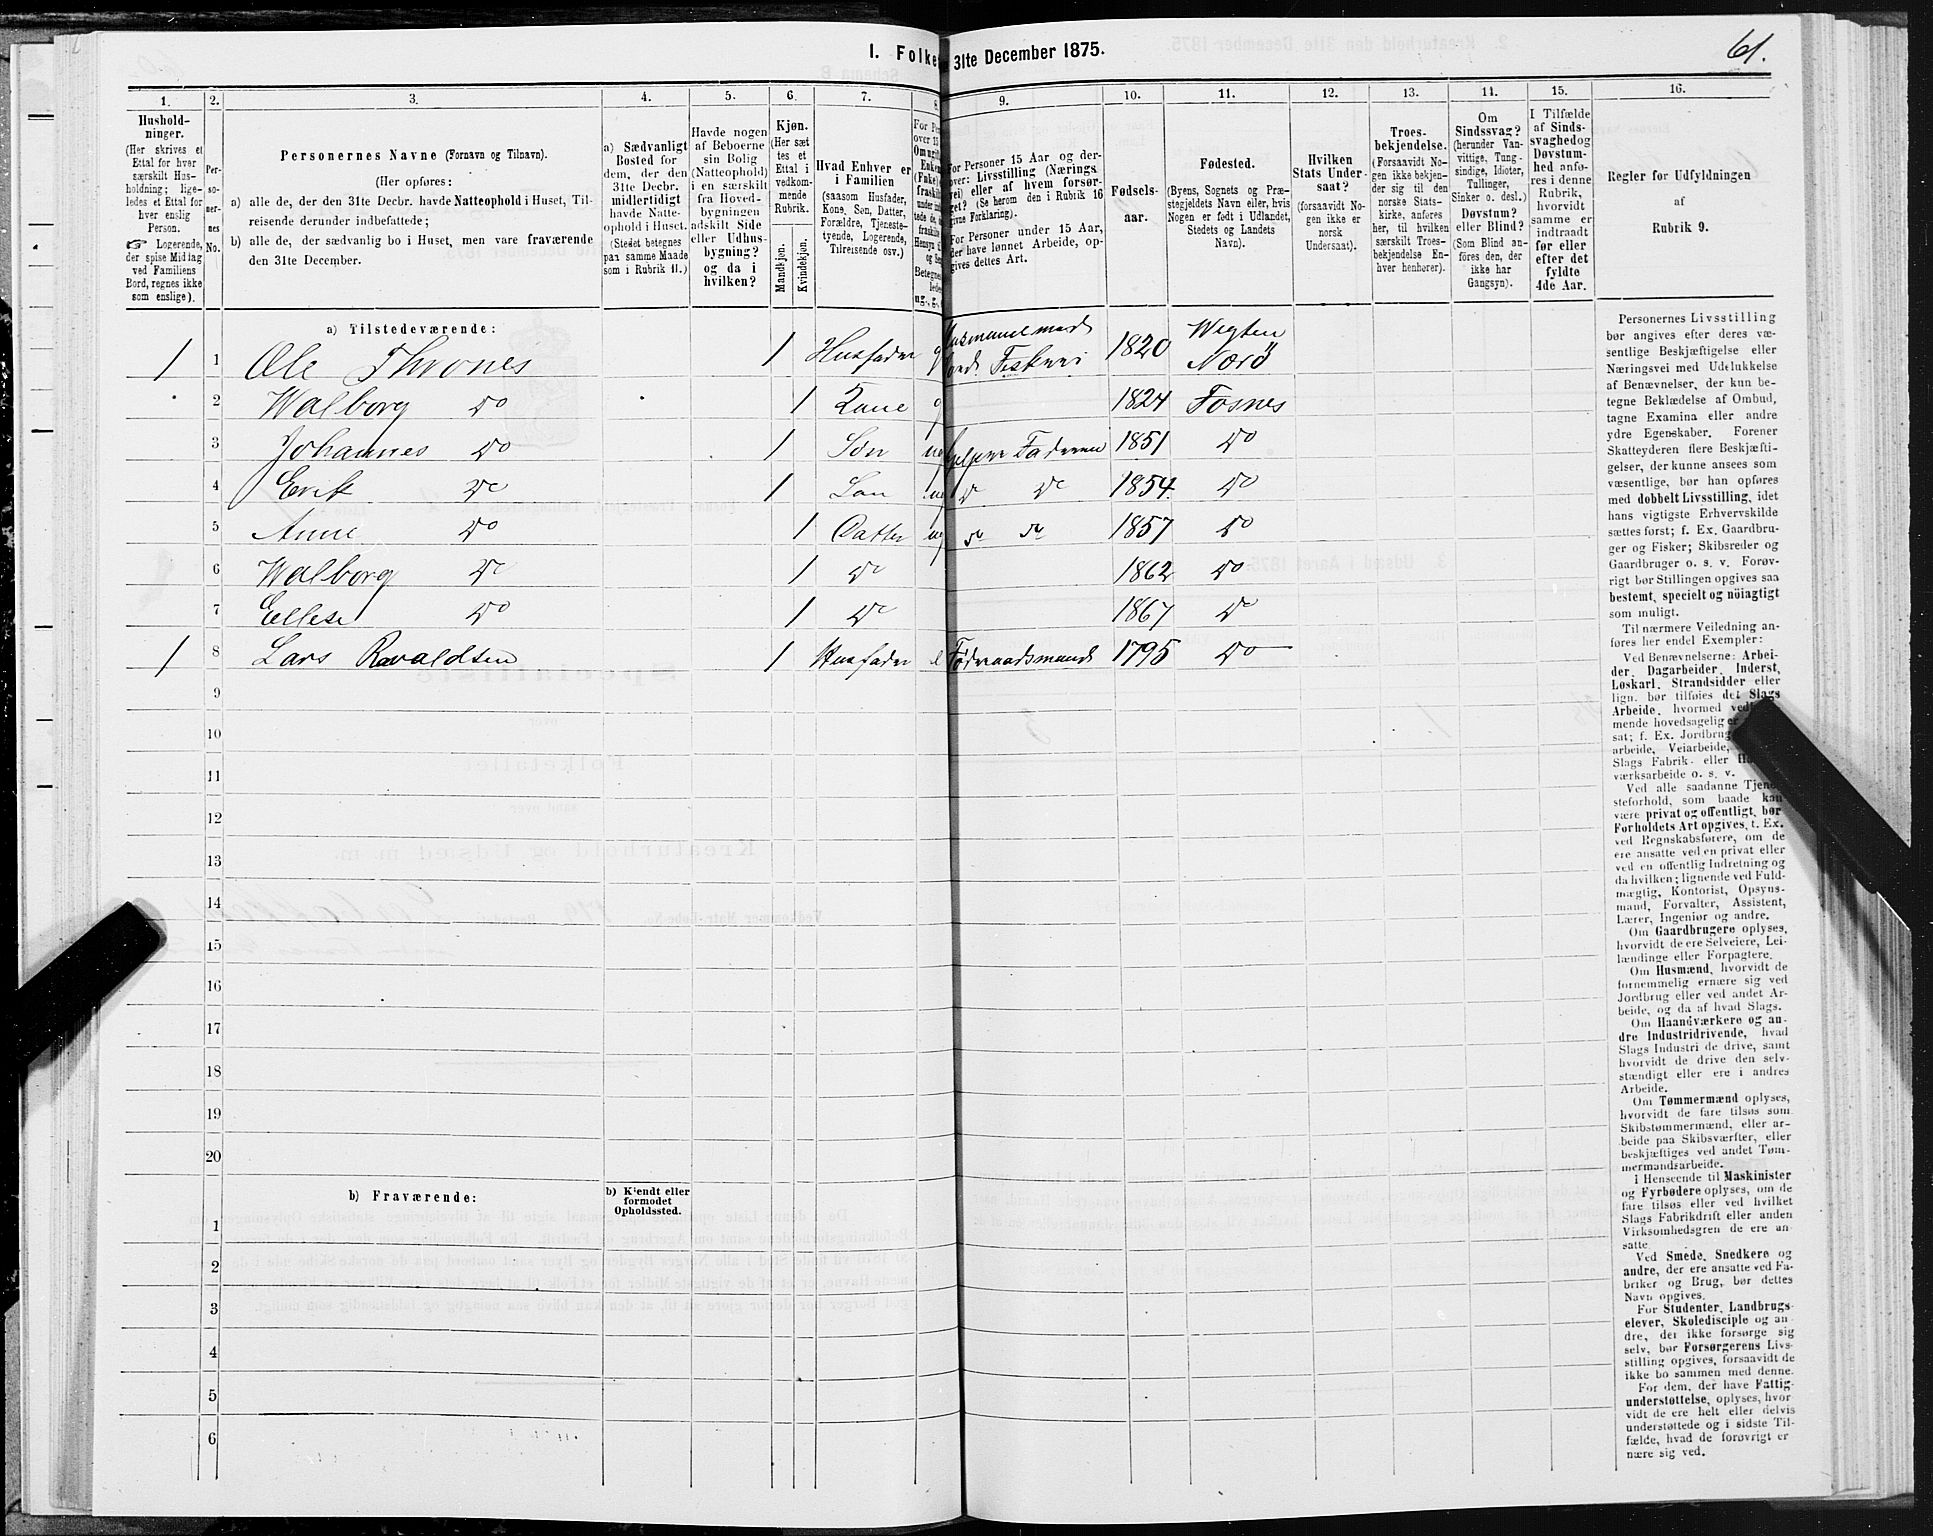 61.
I. Folke 31te December 1875.
1. 2. 3. 4. 5. 6. 7. 8. 9. 10. 11. 12. 13. 14. 15. 16.
Hushold-
ninger.
(Her skrives et
Ettal for hver
særskilt Hus-
holdning; lige-
ledes et Ettal for
hver enslig
Person.
☞ Logerende,
der spise Middag
ved Familiens
Bord, regnes ikke
som enslige).
Per-
so-
ner-
nes
No.
Personernes Navne (Fornavn og Tilnavn).
(Her opføres:
a) alle de, der den 31te Decbr. havde Natteophold i Huset, Til-
reisende derunder indbefattede;
b) alle de, der sædvanlig bo i Huset, men vare fraværende
den 31te December.
a) Sædvanligt
Bosted for
dem, der den
31te Decbr.
midlertidigt
havde Natte-
ophold i Huset.
(Stedet betegnes
paa samme Maade
som i Rubrik 11.)
Havde nogen
af Beboerne
sin Bolig
(Natteophold)
i en særskilt
fra Hoved-
bygningen
adskilt Side
eller Udhus-
bygning?
og da i
hvilken?
Kjøn.
(Her sæt
tes et
Ettal i
vedkom-
mende
Rubrik.
Mandkjøn.
Kvindekjøn.
Hvad Enhver er
i Familien
(saasom Husfader,
Kone, Søn, Datter,
Forældre, Tjeneste-
tyende, Logerende,
Tilreisende osv.)
For Personer 15 Aar og der-
over: Livsstilling (Nærings
vei) eller af hvem forsør-
get? (Se herom den i Rubrik 16
givne Forklaring).
For Personer under 15 Aar,
der have lønnet Arbeide, op-
gives dettes Art.
Fødsels-
aar.
Fødested.
(Byens, Sognets og Præ-
stegjeldets Navn eller, hvis
Nogen er født i Udlandet,
Stedets og Landets
Navn).
Hvilken
Stats Under-
saat?
(forsaavidt No-
gen ikke er
norsk
Undersaat).
Troes-
bekjendelse.
(Forsaavidt No-
gen ikke bekjen-
der sig til den
norske Stats-
kirke, anføres
her, til hvilken
særskilt Troes-
bekjendelse En-
hver henhører).
Om
Sindssvag?
(herunder Van-
vittige, Tung-
sindige, Idioter,
Tullinger,
Sinker o. desl.)
Døvstum?
eller Blind?
(Som Blind an-
føres den, der
ikke har
Gangsyn).
I Tilfælde
af Sinds-
svaghed og
Døvstum-
hed anfø-
res i denne
Rubrik,
hvorvidt
samme er
indtraadt
før eller
efter det
fyldte
4de Aar.
Regler for Udfyldningen
af
Rubrik 9.
a) Tilstedeværende:
1 1 Ole Thrones 1 Husfader g 1820 Wegten Nærö
2 Walborg do 1 Kone g 1824 Fosnes
3 Johannes do 1 Søn ug Faderen 1851 do
4 Erik do 1 Søn ug do do 1854 do
5 Anne do 1 Datter ug do do 1857 do
6 Walborg do 1 do 1862 do
7 Ellese do 1 do 1867 do
1 8 Lars Ravaldsen 1 Husfader e Föderaadsmand 1795 do
9
10
11
12
13
14
15
16
17
18
19
20
b) Fraværende:
b) Kjendt eller
formodet
Opholdssted.
1
2
3
4
5
6
Personernes Livsstilling
bør angives efter deres væ-
sentlige Beskjæftigelse eller
Næringsvei med Udelukkelse
af Benævnelser, der kun be-
tegne Beklædelse af Ombud,
tagne Examina eller andre
ydre Egenskaber. Forener
Skatteyderen flere Beskjæfti-
gelser, der kunne ansees som
væsentlige, bør han opføres
med dobbelt Livsstilling, idet
hans vigtigste Erhvervskilde
sættes først; f. Ex. Gaardbru-
ger og Fisker; Skibsreder og
Gaardbruger o. s. v. Forøv-
rigt bør Stillingen opgives saa
bestemt, specielt og nöiagtigt
som muligt.
Til nærmere Veiledning an-
føres her endel Exempler:
Ved Benævnelserne: Arbei-
der, Dagarbeider, Inderst,
Løskarl, Strandsidder eller
lign. bør tilføies det Slags
Arbeide, hvormed
mende hovedsagelig er
sat; f. Ex. Jordbrug
arbeide, Veiarbeide,
Slags Fabrik- eller
værksarbeide o. s. v.
Ved alle saadanne Tjene-
steforhold, som baade kan
være privat og offentligt, bør
Forholdets Art opgives, t. Ex.
ved Regnskabsførere, om de
ere ansatte ved en privat eller
ved en offentlig Indretning og
da hvilken; lignende ved Fuld-
mægtig, Kontorist, Opsyns-
mand, Forvalter, Assistent,
Lærer, Ingeniør og andre.
Om Gaardbrugere oplyses,
hvorvidt de ere Selveiere, Lei-
lændinge eller Forpagtere.
Om Husmænd, hvorvidt de
fornemmelig ernære sig ved
Jordbrug eller ved andet Ar-
beide, og da af hvad Slags.
Om Haandværkere og an-
dre Industridrivende, hvad
Slags Industri de drive, samt
hvorvidt de drive den selv-
stændigt eller ere i andres
Arbeide.
Om Tømmermænd oplyses,
hvorvidt de fare tilsøs som
Skibstømmermænd, eller ar-
beide paa Skibsværfter, eller
beskjæftiges ved andet Tøm-
mermandsarbeide.
I Henseende til Maskinister
og Fyrbødere oplyses, om de
fare tilsøs eller ved hvilket
Slags Fabrikdrift eller anden
Virksomhedsgren de ere an-
satte.
Ved Smede, Snedkere og
andre, der ere ansatte ved Fa-
briker og Brug, bør dettes
Navn opgives.
For Studenter, Landbrugs-
elever, Skoledisciple og an-
dre, der ikke forsørge sig
selv, bør Forsørgerens Livs-
stilling opgives, forsaavidt de
ikke bo sammen med denne.
For dem, der have Fattig-
understøttelse, oplyses, hvor-
vidt de ere helt eller delvis
understøttede og i sidste Til-
fælde, hvad de forøvrigt er-
nære sig ved.